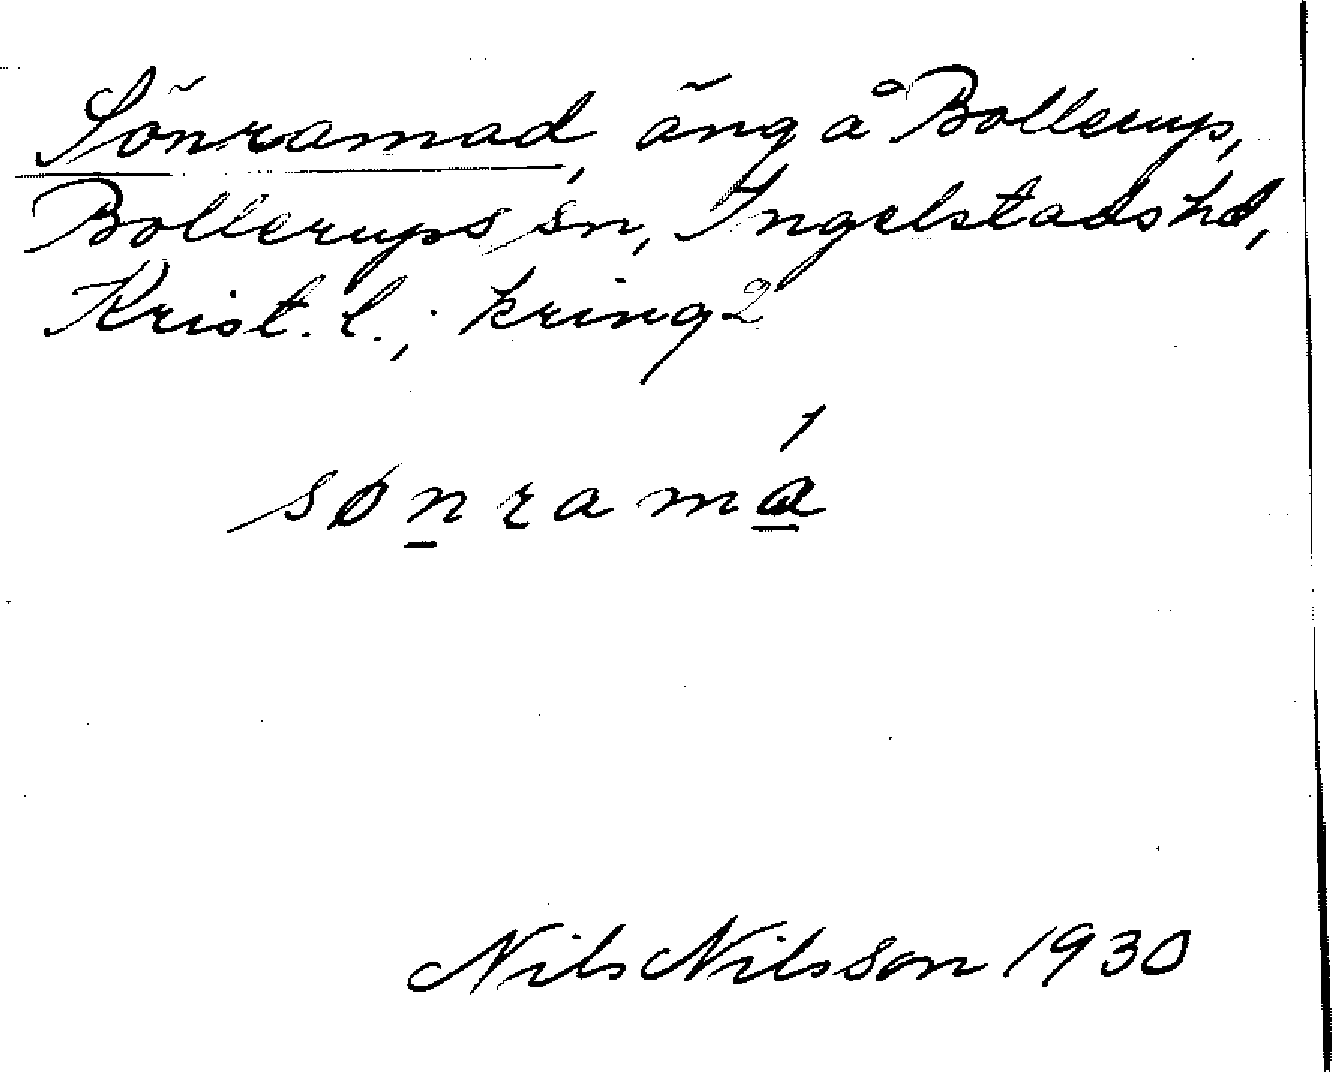 Sönramad, äng å Bollerup,
Bollerups sn, Ingelstads hd,
Krist. l.; kring 2
sønramá
Nils Nilsson 1930